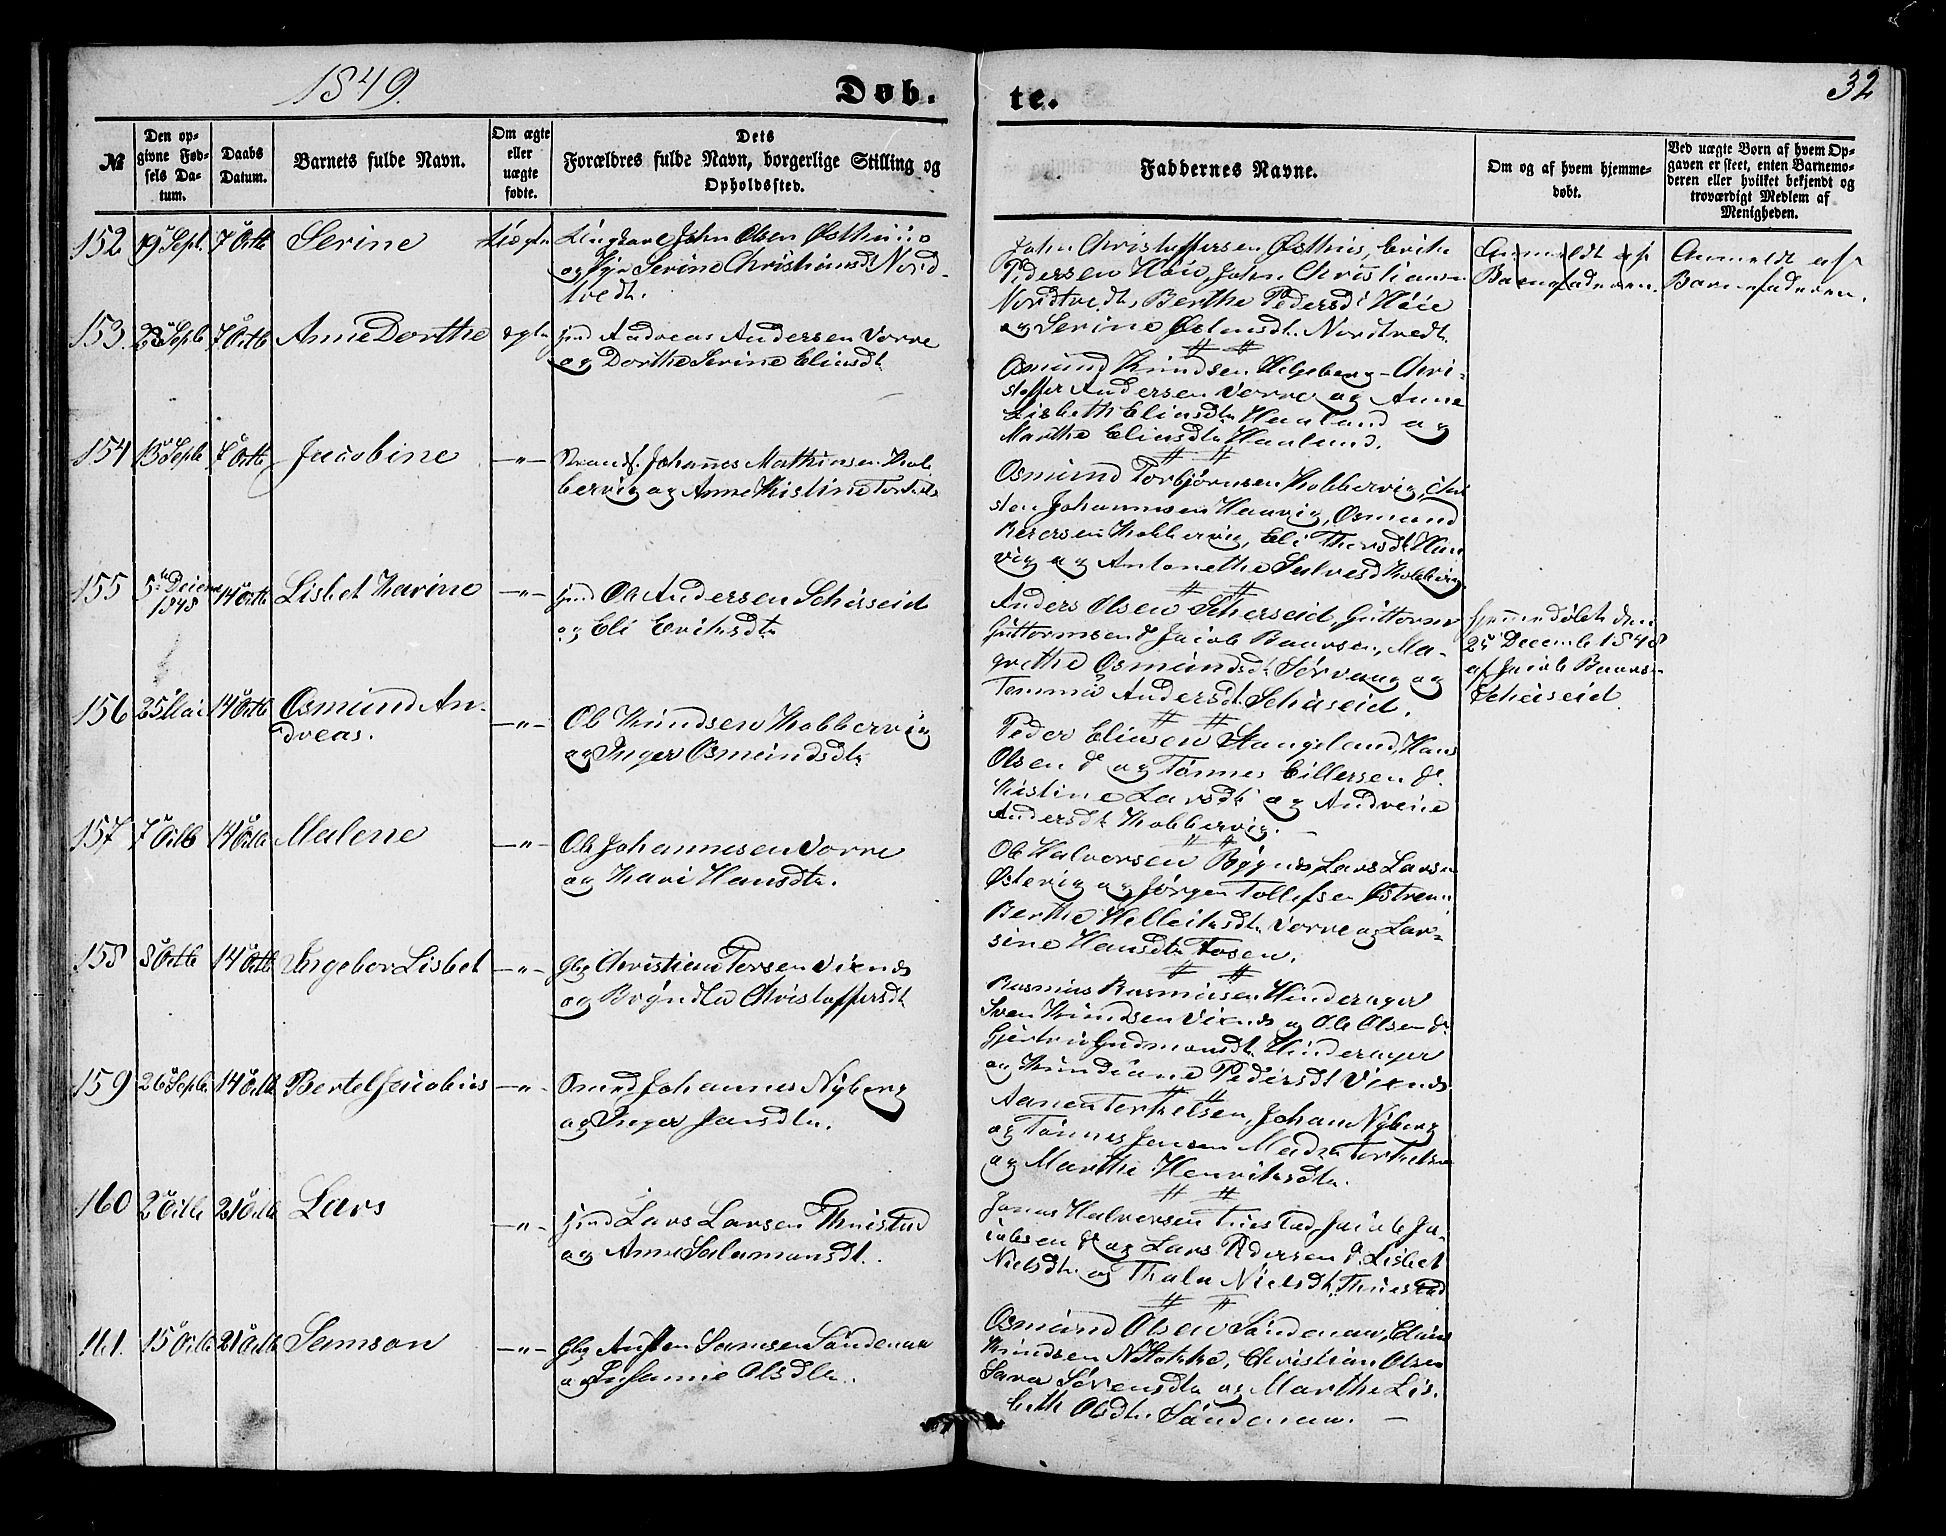 1849.
Døb-
te.
32
№
Den op-
givne Fød-
sels Da-
tum.
Daabs
Datum.
Barnets fulde Navn.
Om ægte
eller
uægte
fødte.
Dets
Forældres fulde Navn, borgerlige Stilling og
Opholdssted.
Faddernes Navne.
Om og af hvem hjemme-
døbt.
Ved uægte Børn af hvem Op-
gaven er skeet, enten Barnemo-
deren eller hvilket bekjendt og
troværdigt Medlem af
Menigheden.
152 19 Sept. 7 Octb Serine Uægte Ungkarl John Olsen Østhuus
og Pige Serine Christiansdt Nord-
tvedt.
John Christoffersen Østhuus, Erik
Pedersen Høie, John Christiansen
Nordtvedt, Berthe Pedersdt Høie
og Serine Nordtvedt.
Anmeldt af
Barnefaderen.
Anmeldt af
Barnefaderen.
153. 23 Septb 7 Octb Anne Dorthe ægte Andreas Andersen Vorre
og Dorthe Serine Eliasdt
Osmund Knudsen Helgeberg - Chri-
stoffer Andersen Vorre og Anne
Lisbeth Eliasdt Haaland og
Marthe Eliasdt Haaland.
154 13 Septb 7 Octb Jacobine -"- Strands. Johannes Mathiasen Kob-
bervig og Anne Kistine
Osmund Torbjørnsen Kobbervig,
sten Johannesen Haavig, Osmund
Kobbervig, Eli Haa-
vig og Antonethe Kobbervig.
155 5 Decem 1848 14 Octb Lisbet Karine -"- Ole Andersen
og Eli Eriksdt
Anders Olsen Guttorm
Guttormsen do Jacob Baarsen, Ma-
grethe Osmundsdt og
Andersdt
Hjemmedøbt den
25 December 1848
af Jacob Baars-
156 25 Mai 14 Octb Osmund An-
dreas. -"- Ole Knudsen Kobbervig
og Inger Osmundsdt
Peder Eliasen Stangeland, Hans
Olsen do og Tønnes Eillersen do
Kistine Larsdt og Andreine
Andersdt Kobbervig. -
157 7 Octb 14 Octb Malene -"- Ole Johannesen Vorre
og Kari Hansdt.
Ole Halvorsen Bøgnes, Lars Larsen
Østevig og Jørgen Tollefsen
Berthe Helleiksdt Vorre og Lar-
sine Hansdt Fosen.
158 3 Octb 14 Octb Ingebor Lisbet -"- Christian Vixnes
og Bryndla Christoffersdt
Rasmus Rasmusen Hinderager
Sven Knudsen Vixnes og Ole Olsen do
Gjertrud Gudmansdt Hinderager
og Knudiane Pedersdt Vixnes
159 26 Septb. 14 Octb Bertel Jacobus -"- Johannes Nyberg
og Inger Jansdt.
Aanen Terkelsen, Johan Nyberg
og Tønnes Jansen
og Marthe Henriksdt.
160 2 Octb 21 Octb Lars -"- Lars Larsen
og Anne Salamonsdt.
Jonas Halvorsen Jacob Ja-
cobsen do og Lars Pedersen do Lisbet
Nielsdt og Thala Nielsdt
161. 15 Octb 21 Octb Samson -"- Austen Samsen Søndenaa
og Olsdt.
Osmund Olsen Søndenaa, Elias
Knudsen Christian Olsen
Sara Sørensdt og Marthe Lis-
beth Olsdt Søndenaa. -